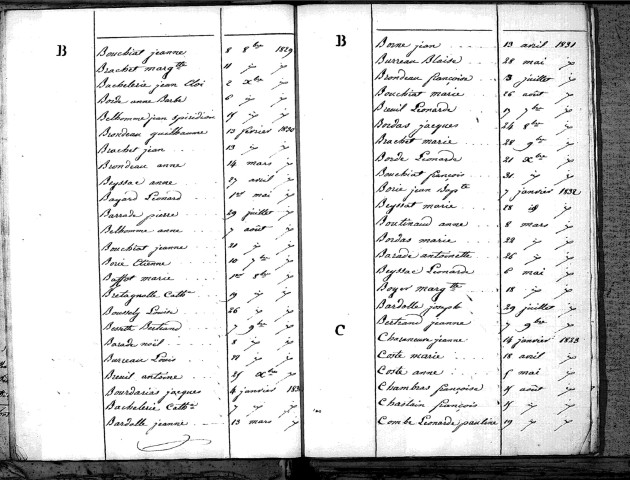 B
Bouchiat jeanne 8 8bre 1829
Brachet margtte 11 〃 〃
Bachelerie jean Eloi 2 Xbre 〃
Borde anne Barbe 6 〃 〃
Belhomme jean Spiridion 14 〃 〃
Brondeau guilhaume 13 février 1830
Brachet jean 13 〃 〃
Brondeau anne 14 mars 〃
Beyssac anne 27 avril 〃
Bayard Léonard 1er mai 〃
Barrade pierre 29 juillet 〃
Belhomme anne 7 août 〃
Bouchiat jeanne 21 〃 〃
Borie Etienne 10 7bre 〃
Baffet marie 1er 8bre 〃
Bretagnolle Cathne 19 〃 〃
Boussely Louise 26 〃 〃
Bertrand 7 9bre 〃
Barade noël 8 〃 〃
Burceau Louis 〃 〃
Breuil antoine 25 Xbre 〃
Bourdarias jacques 4 janvier 183
Bachelerie Cathne 7 〃 〃
Bardolle jeanne 13 mars 〃
B
Borne jean 13 avril 1831
Burreau Blaise 28 mai 〃
Brondeau françoise 13 juillet 〃
Bouchiat marie 26 août 〃
Breuil Léonarde 19 7bre 〃
Bordas jacques 24 8bre 〃
Brachet marie 28 9bre 〃
Borde Léonarde 21 Xbre 〃
Bouchiat françois 31 〃 〃
Borie jean Bapte 7 janvier 1832
Beyssat marie 28 〃
Boutinaud anne 8 mars 〃
Bordas marie 22 〃 〃
Barade antoinette 26 〃 〃
Beyssac Léonarde 6 mai 〃
Boyer margtte 18 〃 〃
Bardolle joseph 29 juillet 〃
Bertrand jeanne 7 9bre 〃
C
Chazeneuve jeanne 14 janvier 1833
Coste marie 18 avril 〃
Coste anne 5 mai 〃
Chambras françoise 15 août 〃
Chastain françois 15 〃 〃
Combe Léonarde pauline 19 〃 〃